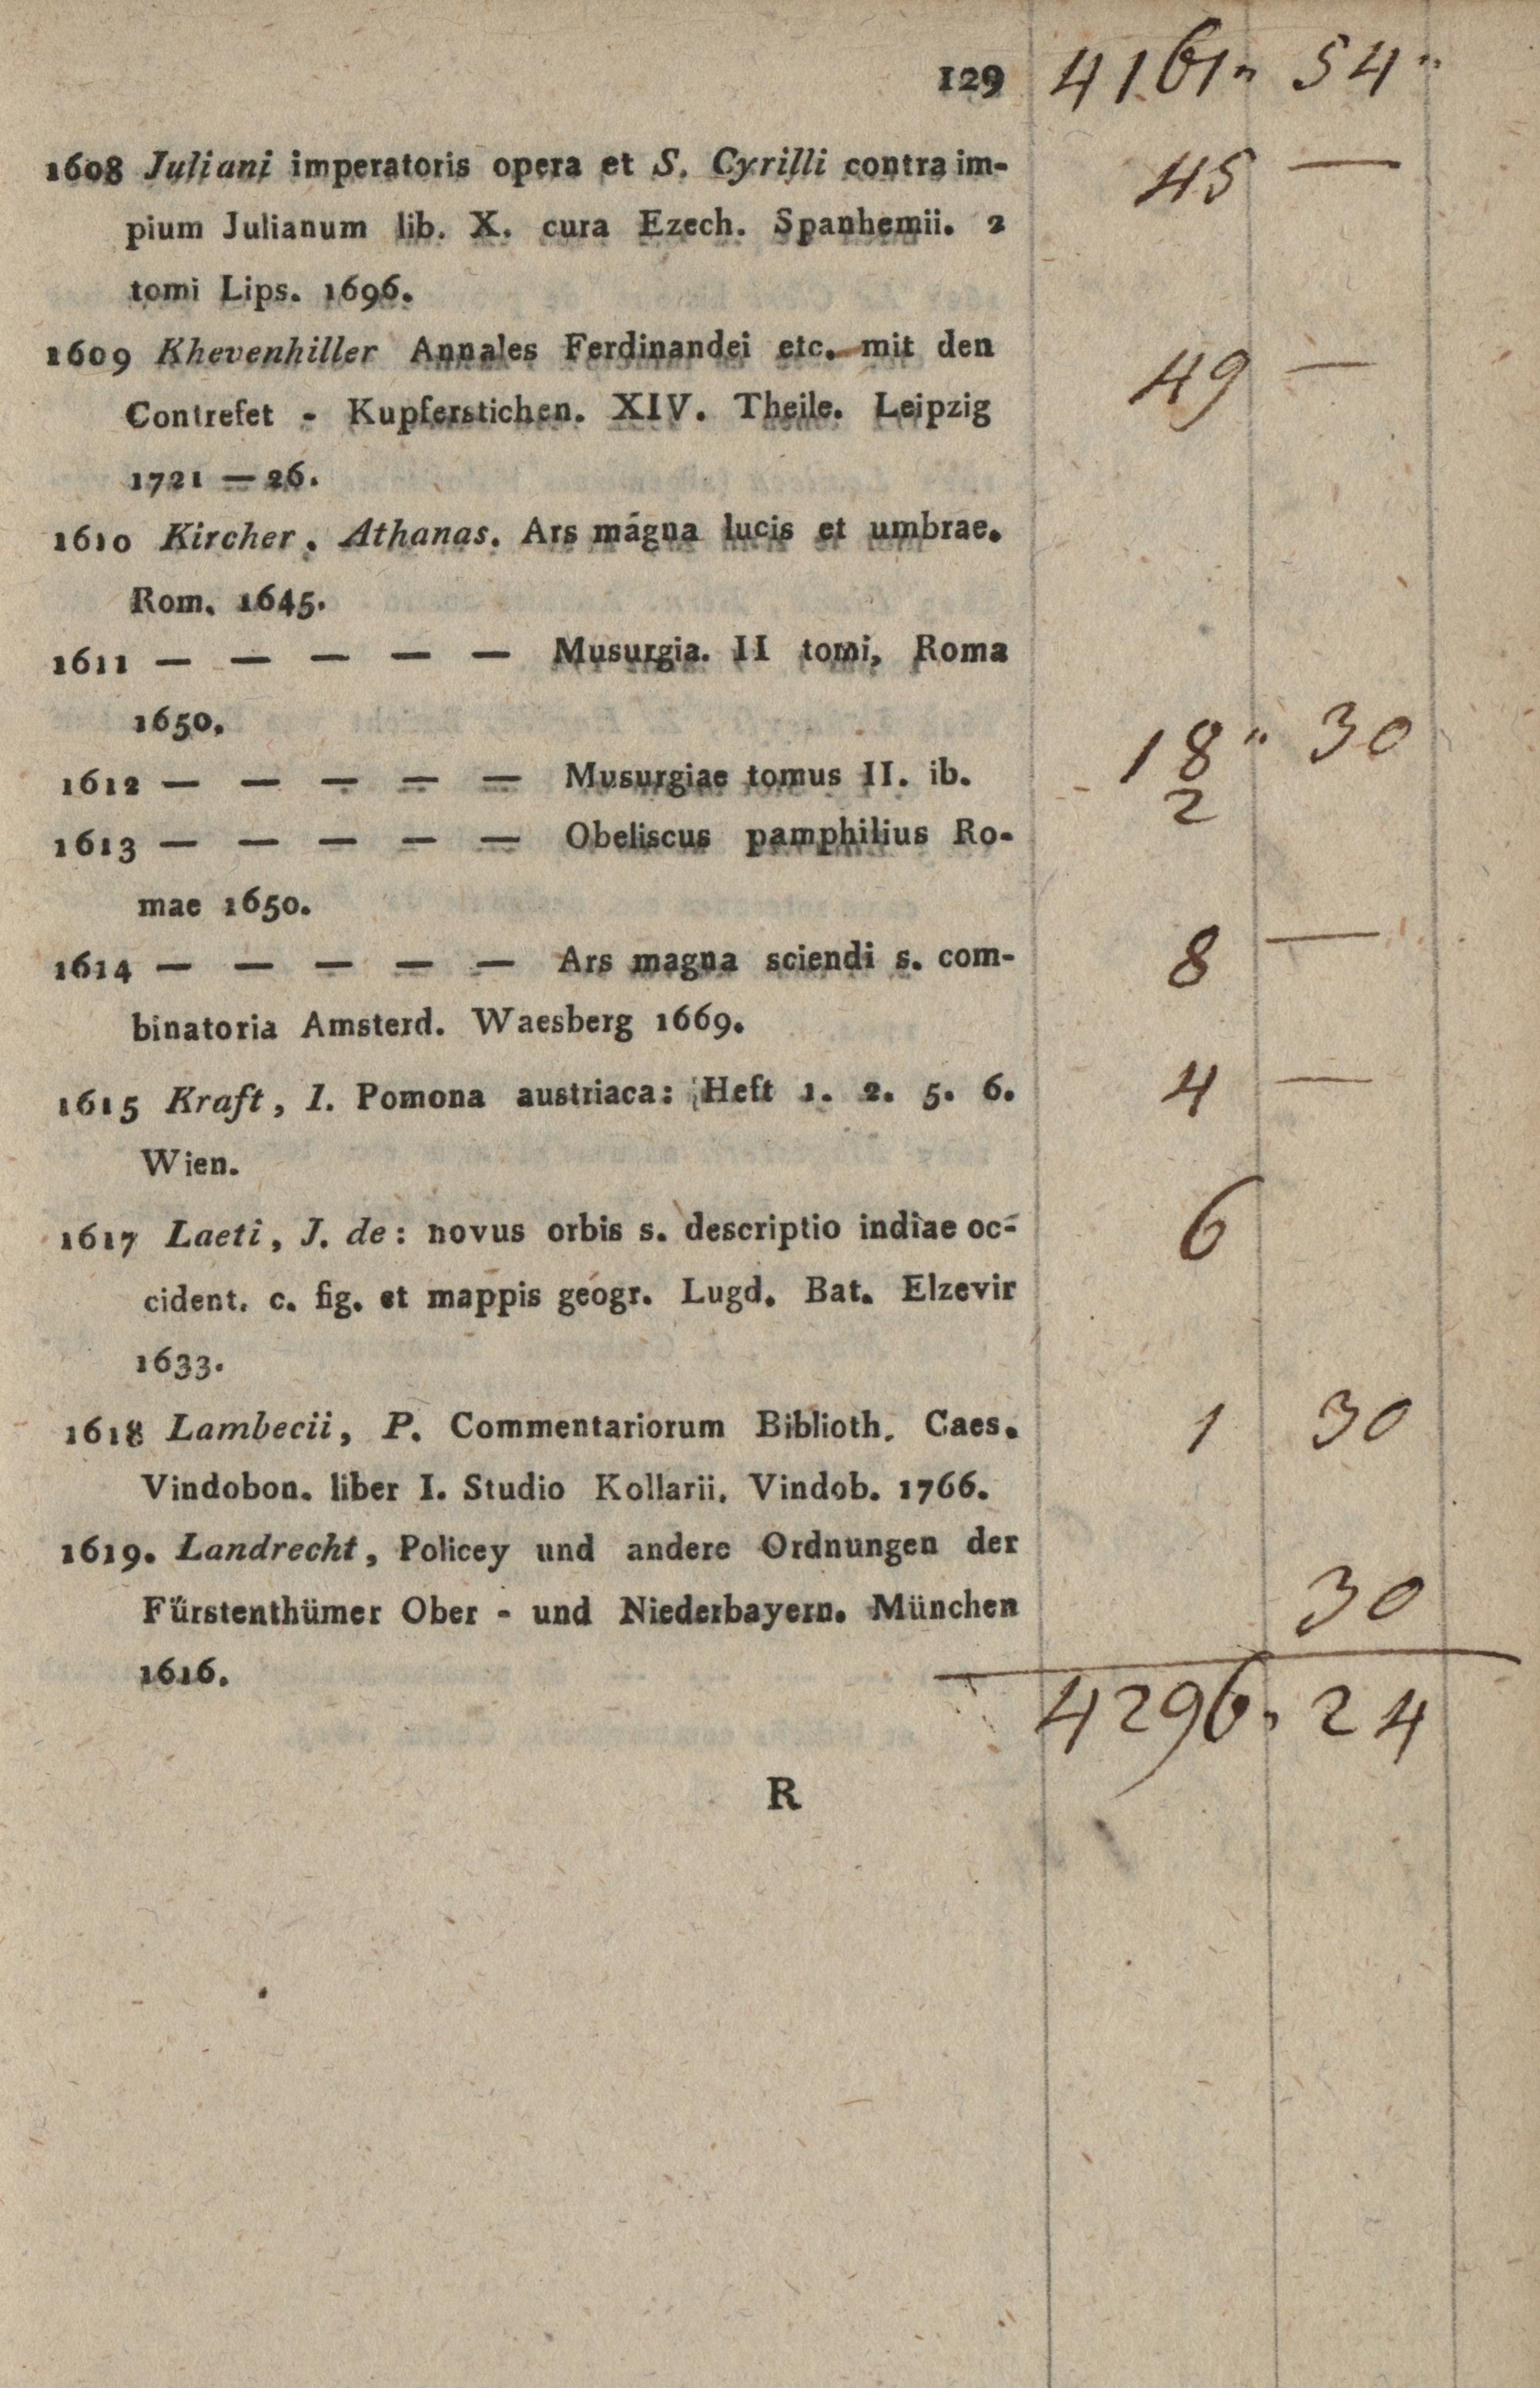 129 4161" 54"
1608 Juliani imperatoris opera et S. Cyrilli contra im- 45 —
pium Julianum lib. X. cura Ezech. Spanhemii. 2
tomi Lips. 1696.
1609 Khevenhiller Annales Ferdinandei etc. mit den 49 —
Contrefet - Kupferstichen. XIV. Theile. Leipzig
1721 — 26.
1610 Kircher. Athanas. Ars magna lucis et umbrae.
Rom. 1645.
1611 — — — — — Musurgia. II tomi, Roma
1650. 18" 30
1612 — — — — — Musurgiae tomus II. ib. 2
1613 — — — — — Obeliscus pamphilius Ro-
mae 1650.
1614 — — — — — Ars magna sciendi s. com- 8 —
binatoria Amsterd. Waesberg 1669.
1615 Kraft, I. Pomona austriaca: Heft 1. 2. 5. 6. 4 —
Wien.
1617 Laeti, J. de: novus orbis s. descriptio indiae oc- 6
cident. c. fig. et mappis geogr. Lugd. Bat. Elzevir
1633.
1618 Lambecii, P. Commentariorum Biblioth. Caes. 1 30
Vindobon. liber I. Studio Kollarii. Vindob. 1766.
1619. Landrecht, Policey und andere Ordnungen der
Fürstenthümer Ober - und Niederbayern. München 30
1616.
4296" 24
R